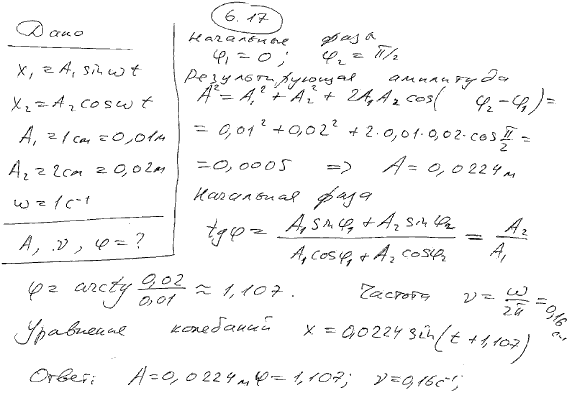 6.17
Дано
x₁ = A₁ sin ωt
x₂ = A₂ cos ωt
A₁ = 1см = 0,01м
A₂ = 2см = 0,02м
ω = 1 с⁻¹
A, ν, φ = ?
Начальные фаза
φ₁ = 0; φ₂ = π/2
Результирующая амплитуда
A² = A₁² + A₂² + 2A₁A₂ cos( φ₂ - φ₁) =
= 0,01² + 0,02² + 2·0,01·0,02·cos π/2 =
= 0,0005 => A = 0,0224 м
Начальная фаза
tg φ = (A₁ sin φ₁ + A₂ sin φ₂)/(A₁ cos φ₁ + A₂ cos φ₂) = A₂/A₁
φ = arctg 0,02/0,01 ≈ 1,107. Частота ν = ω/2π = 0,16
Уравнение колебаний x = 0,0224 sin(t + 1,107)
Ответ: A = 0,0224 м φ = 1,107; ν = 0,16 с⁻¹;